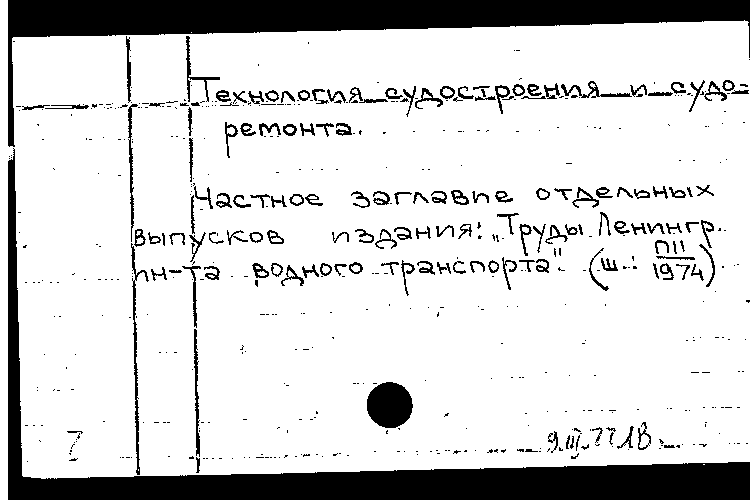 Технология судостроения и судо-
ремонта.
Частное заглавие отдельных
выпусков издания: „Труды Ленингр.
ин-та водного транспорта". (ш.: П11/1974)
9.III.77